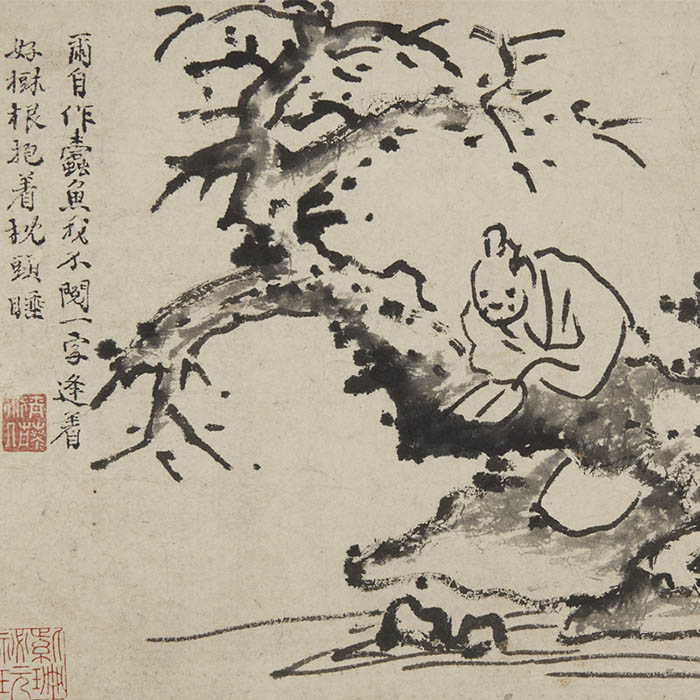 爾自作蠹魚我不閱一字逢着
好樹根抱着枕頭睡
青藤